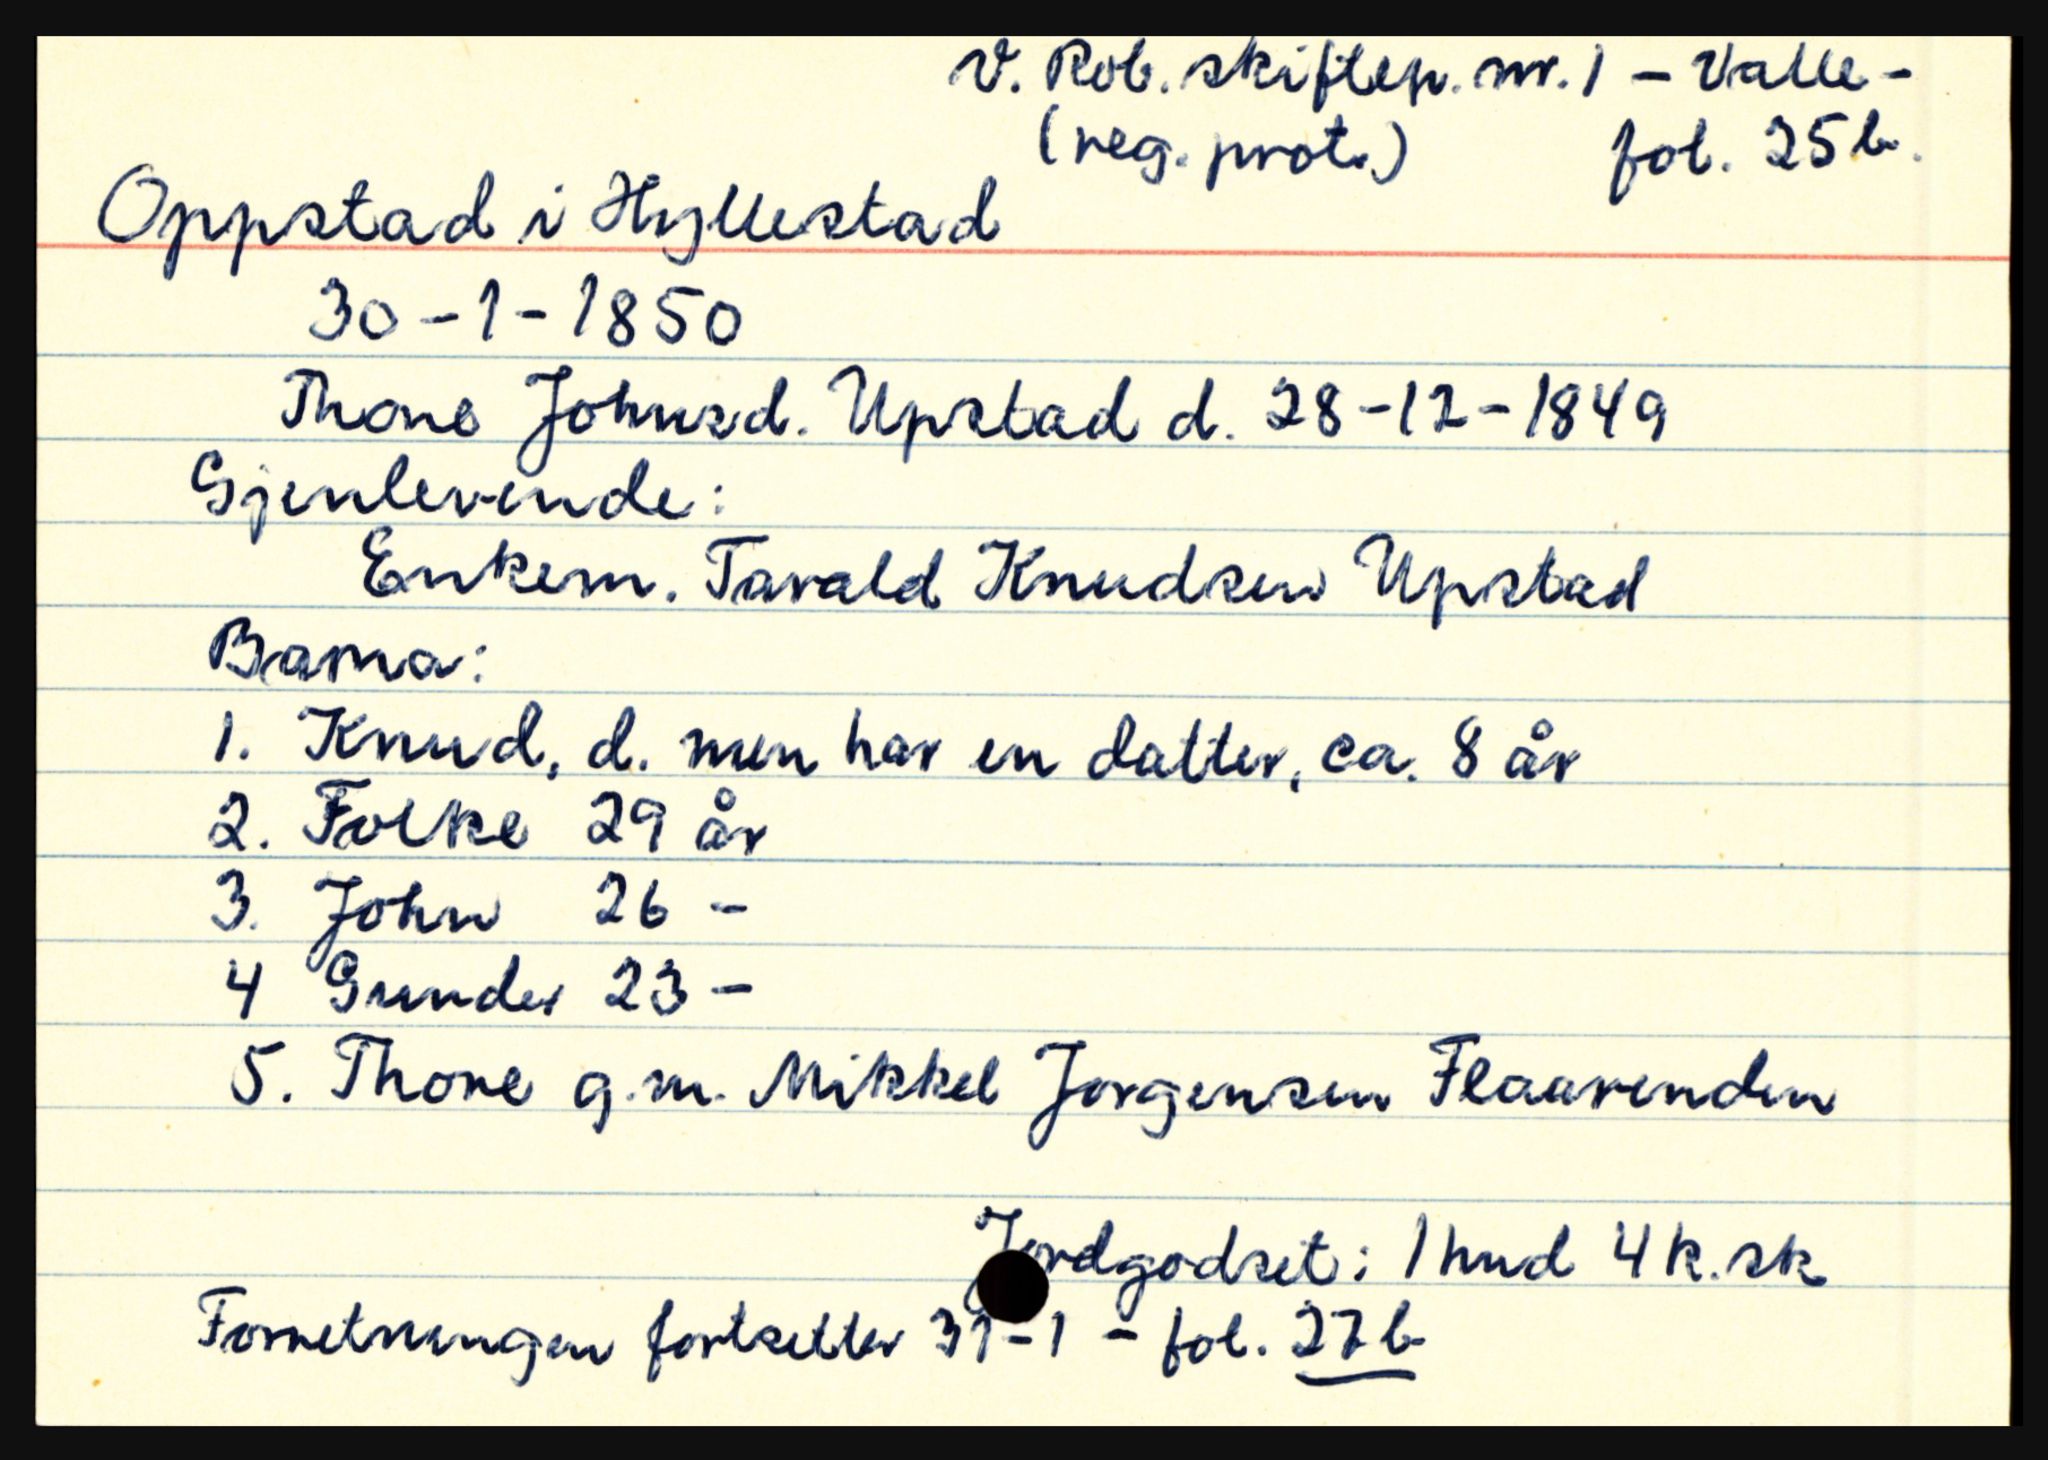 V. Rob. skiftep. nr. 1 - Valle -
(reg. prot.) fol. 25b.
Oppstad i Hyllestad
30-1-1850
Thone Johnsd. Upstad d. 28-12-1849
Gjenlevende:
Enkem. Tarald Knudsen Upstad
Barna:
1. Knud, d. men har en datter, ca. 8 år
2. Folke 29 år
3. John 26 -
4 Gunder 23 -
5. Thone g.m. Mikkel Jorgensen Flaarenden
Jordgodset: 1 hud 4 k. sk
Forretningen fortsetter 31-1 - fol. 27b